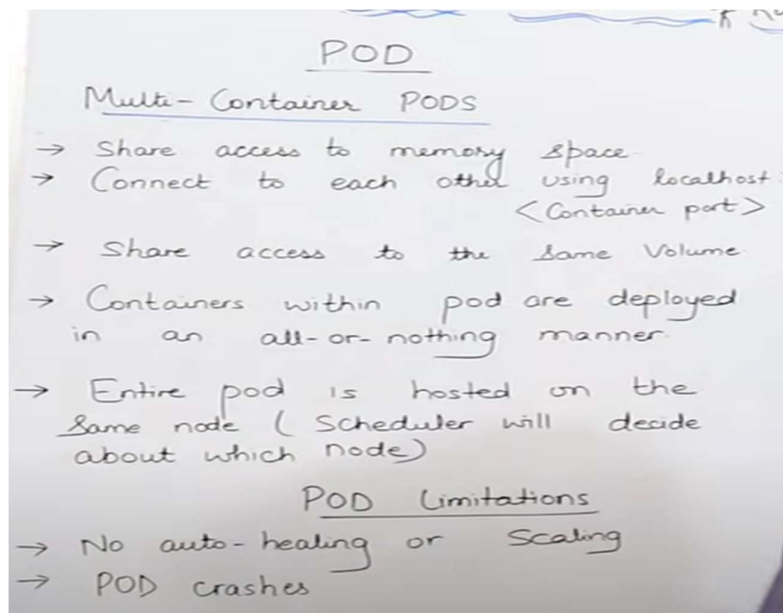 POD
Multi-Container PODS
→ Share access to memory space
→ Connect to each other using localhost:
<Container port>
→ Share access to the Same Volume
→ Containers within pod are deployed
in an all-or-nothing manner.
→ Entire pod is hosted on the
Same node ( Scheduler will decide
about which node)
POD Limitations
→ No auto-healing or Scaling
→ POD crashes